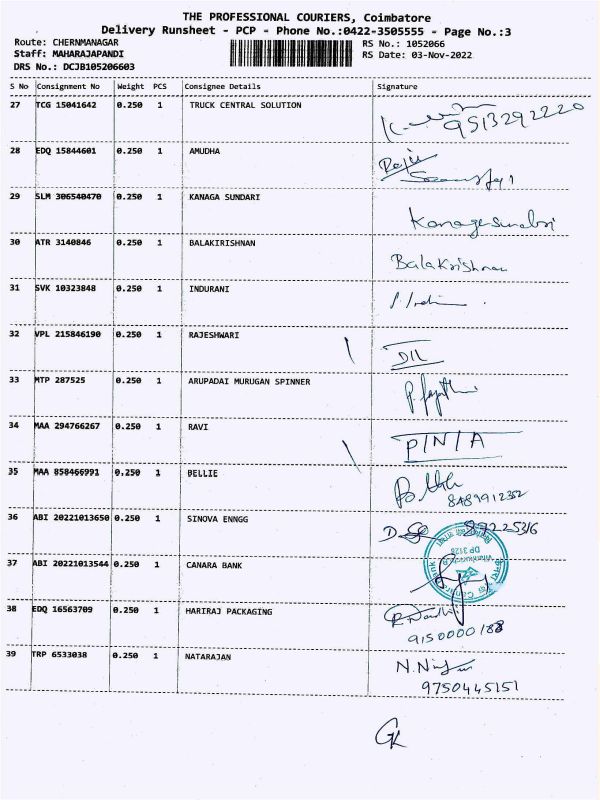 THE PROFESSIONAL COURIERS, Coimbatore
Delivery Runsheet - PCP - Phone No.:0422-3505555 - Page No.:3
Route: CHERNMANAGAR RS No.: 1052066
Staff: MAHARAJAPANDI RS Date: 03-Nov-2022
DRS No.: DCJB105206603
S No Consignment No Weight PCS Consignee Details Signature
27 TCG 15041642 0.250 1 TRUCK CENTRAL SOLUTION
9513292220
28 EDQ 15844601 0.250 1 AMUDHA
Raju
29 SLM 306540470 0.250 1 KANAGA SUNDARI
30 ATR 3140846 0.250 1 BALAKIRISHNAN
BalaKrishnan
31 SVK 10323848 0.250 1 INDURANI
32 VPL 215846190 0.250 1 RAJESHWARI
D/L
33 MTP 287525 0.250 1 ARUPADAI MURUGAN SPINNER
34 MAA 294766267 0.250 1 RAVI
P/N/A
35 MAA 858466991 0.250 1 BELLIE
8489912352
36 ABI 20221013650 0.250 1 SINOVA ENNGG
37 ABI 20221013544 0.250 1 CANARA BANK
DP 3128
38 EDQ 16563709 0.250 1 HARIRAJ PACKAGING
9150000188
39 TRP 6533038 0.250 1 NATARAJAN
9750445151